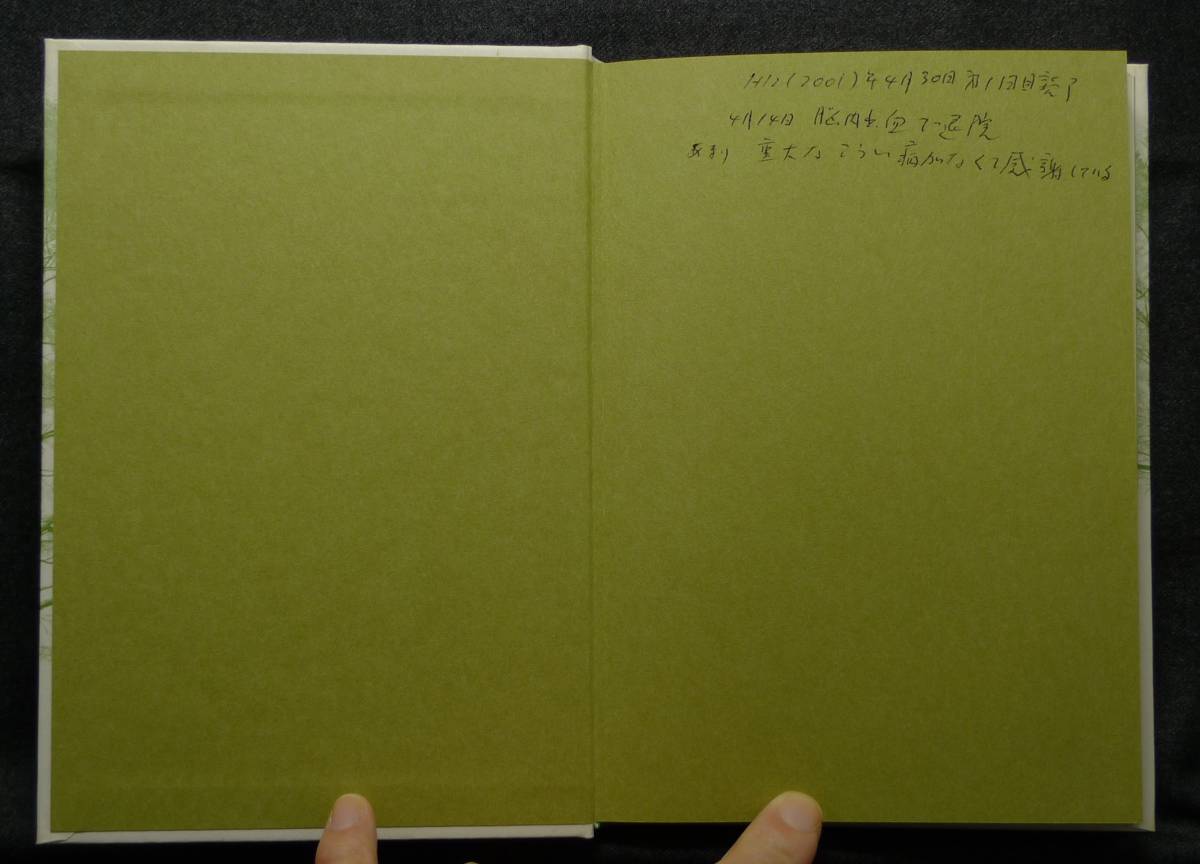 H12(2001)年4月30日 第1回目読了
4月14日 脳内出血で退院
あまり 重大な こうい病がなくて感謝している